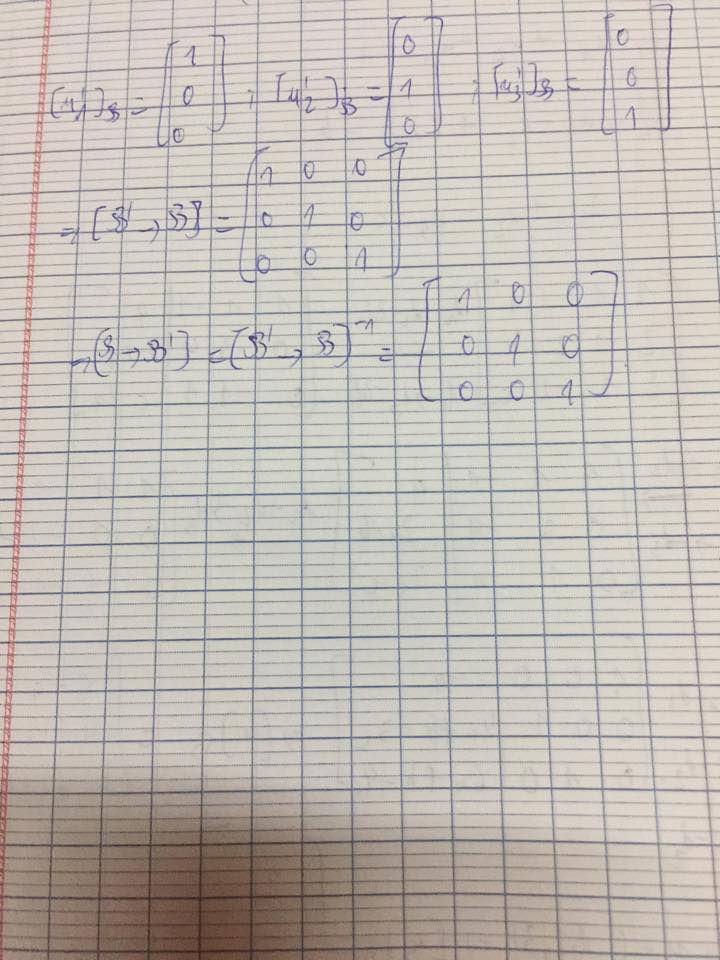 [u'₁]_B = [1 0 0] ; [u'₂]_B = [0 1 0] ; [u'₃]_B = [0 0 1]
⇒ [B' → B] = [1 0 0
0 1 0
0 0 1]
⇒ [B → B'] = [B' → B]⁻¹ = [1 0 0
0 1 0
0 0 1]